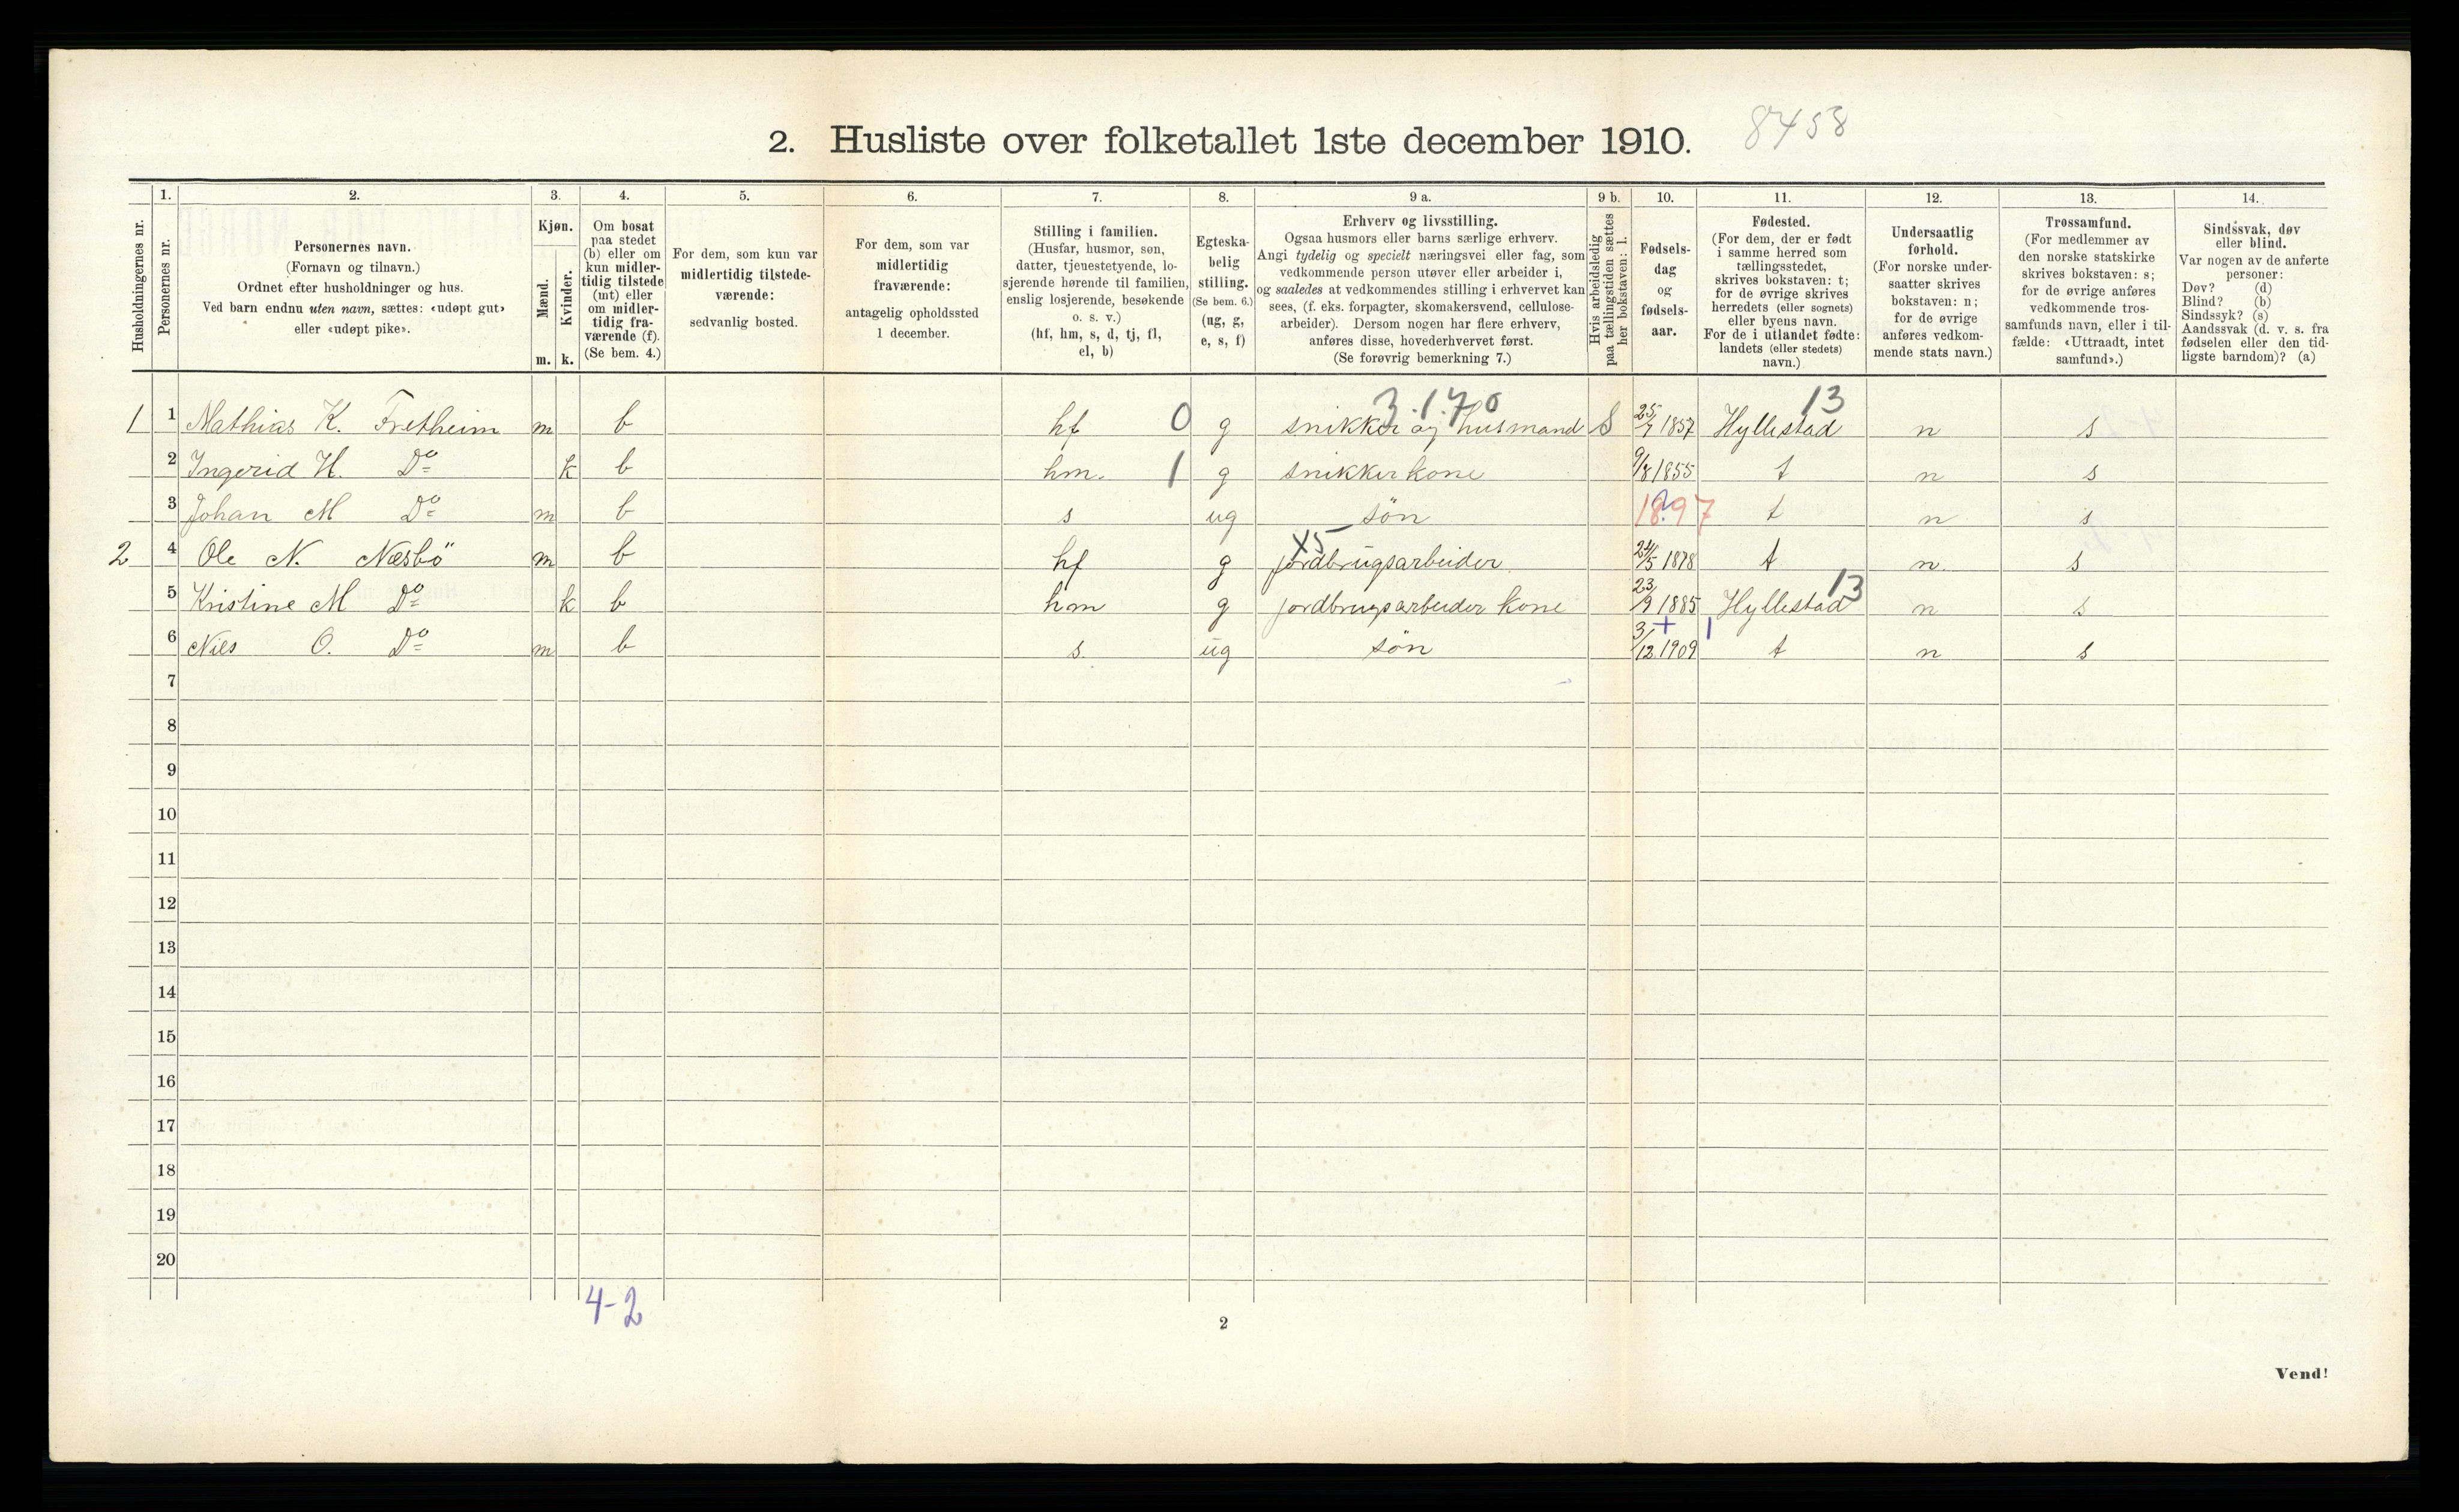 2. Husliste over folketallet 1ste december 1910. 8458
Husholdningernes nr.
1. Personernes nr.
2. Personernes navn.
(Fornavn og tilnavn.)
Ordnet efter husholdninger og hus.
Ved barn endnu uten navn, sættes: «udøpt gut»
eller «udøpt pike».
3. Kjøn.
Mænd. m.
Kvinder. k.
4. Om bosat
paa stedet
(b) eller om
kun midler-
tidig tilstede
(mt) eller
om midler-
tidig fra-
værende (f).
(Se bem. 4.)
5. For dem, som kun var
midlertidig tilstede-
værende:
sedvanlig bosted.
6. For dem, som var
midlertidig
fraværende:
antagelig opholdssted
1 december.
7. Stilling i familien.
(Husfar, husmor, søn,
datter, tjenestetyende, lo-
sjerende hørende til familien,
enslig losjerende, besøkende
o. s. v.)
(hf, hm, s, d, tj, fl,
el, b)
8. Egteska-
belig
stilling.
(Se bem. 6.)
(ug, g,
e, s, f)
9 a. Erhverv og livsstilling.
Ogsaa husmors eller barns særlige erhverv.
Angi tydelig og specielt næringsvei eller fag, som
vedkommende person utøver eller arbeider i,
og saaledes at vedkommendes stilling i erhvervet kan
sees, (f. eks. forpagter, skomakersvend, cellulose-
arbeider). Dersom nogen har flere erhverv,
anføres disse, hovederhvervet først.
(Se forøvrig bemerkning 7.)
9 b. Hvis arbeidsledig
paa tællingstiden sættes
her bokstaven: l.
10. Fødsels-
dag
og
fødsels-
aar.
11. Fødested.
(For dem, der er født
i samme herred som
tællingsstedet,
skrives bokstaven: t;
for de øvrige skrives
herredets (eller sognets)
eller byens navn.
For de i utlandet fødte:
landets (eller stedets)
navn.)
12. Undersaatlig
forhold.
(For norske under-
saatter skrives
bokstaven: n;
for de øvrige
anføres vedkom-
mende stats navn.)
13. Trossamfund.
(For medlemmer av
den norske statskirke
skrives bokstaven: s;
for de øvrige anføres
vedkommende tros-
samfunds navn, eller i til-
fælde: «Uttraadt, intet
samfund».)
14. Sindssvak, døv
eller blind.
Var nogen av de anførte
personer:
Døv? (d)
Blind? (b)
Sindssyk? (s)
Aandssvak (d. v. s. fra
fødselen eller den tid-
ligste barndom)? (a)
3.1.70 13
1 1 Mathias K. Fretheim m b hf 0 g snikker og husmand S 25/7 1857 Hyllestad n s
2 Ingerid H. Do k b hm. 1 g snikker kone 9/8 1855 t n s
3 Johan M Do m b s ug søn 1897 t n s
X5
2 4 Ole N. Næsbö m b hf g jordbrugsarbeider 24/5 1878 t n s
13
5 Kristine M Do k b hm g jordbrugsarbeider kone 23/9 1885 Hyllestad n s
+ 1
6 Nils O. Do m b s. ug søn 3/12 1909 t n s
7
8
9
10
11
12
13
14
15
16
17
18
19
20
4-2
2
Vend!